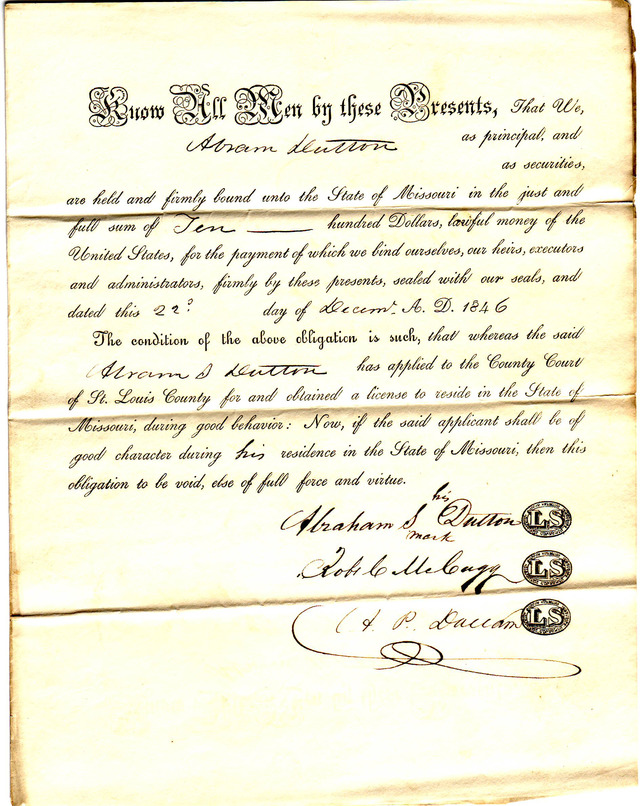 Know All Men by these Presents, That We,
Abram Dutton as principal, and
as securities,
are held and firmly bound unto the State of Missouri in the just and
full sum of Ten —— hundred Dollars, lawful money of the
United States, for the payment of which we bind ourselves, our heirs, executors
and administrators, firmly by these presents, sealed with our seals, and
dated this 22d day of Decemr. A. D. 1846
The condition of the above obligation is such, that whereas the said
Abram S Dutton has applied to the County Court
of St. Louis County for and obtained a license to reside in the State of
Missouri, during good behavior: Now, if the said applicant shall be of
good character during his residence in the State of Missouri, then this
obligation to be void, else of full force and virtue.
his
Abraham S Dutton LS
mark
LS
LS